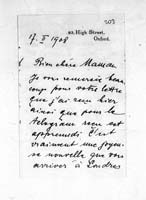 203
20, High Street,
Oxford.
17. V 1908
Bien chère Maman
Je vous remercie beau
coup pour votre lettre
que j'ai reçu hier
ainsi que pour le
telegram reçu cet
après midi. C'est
vraiment une joyeu-
se nouvelle que vous
arriver à Londres